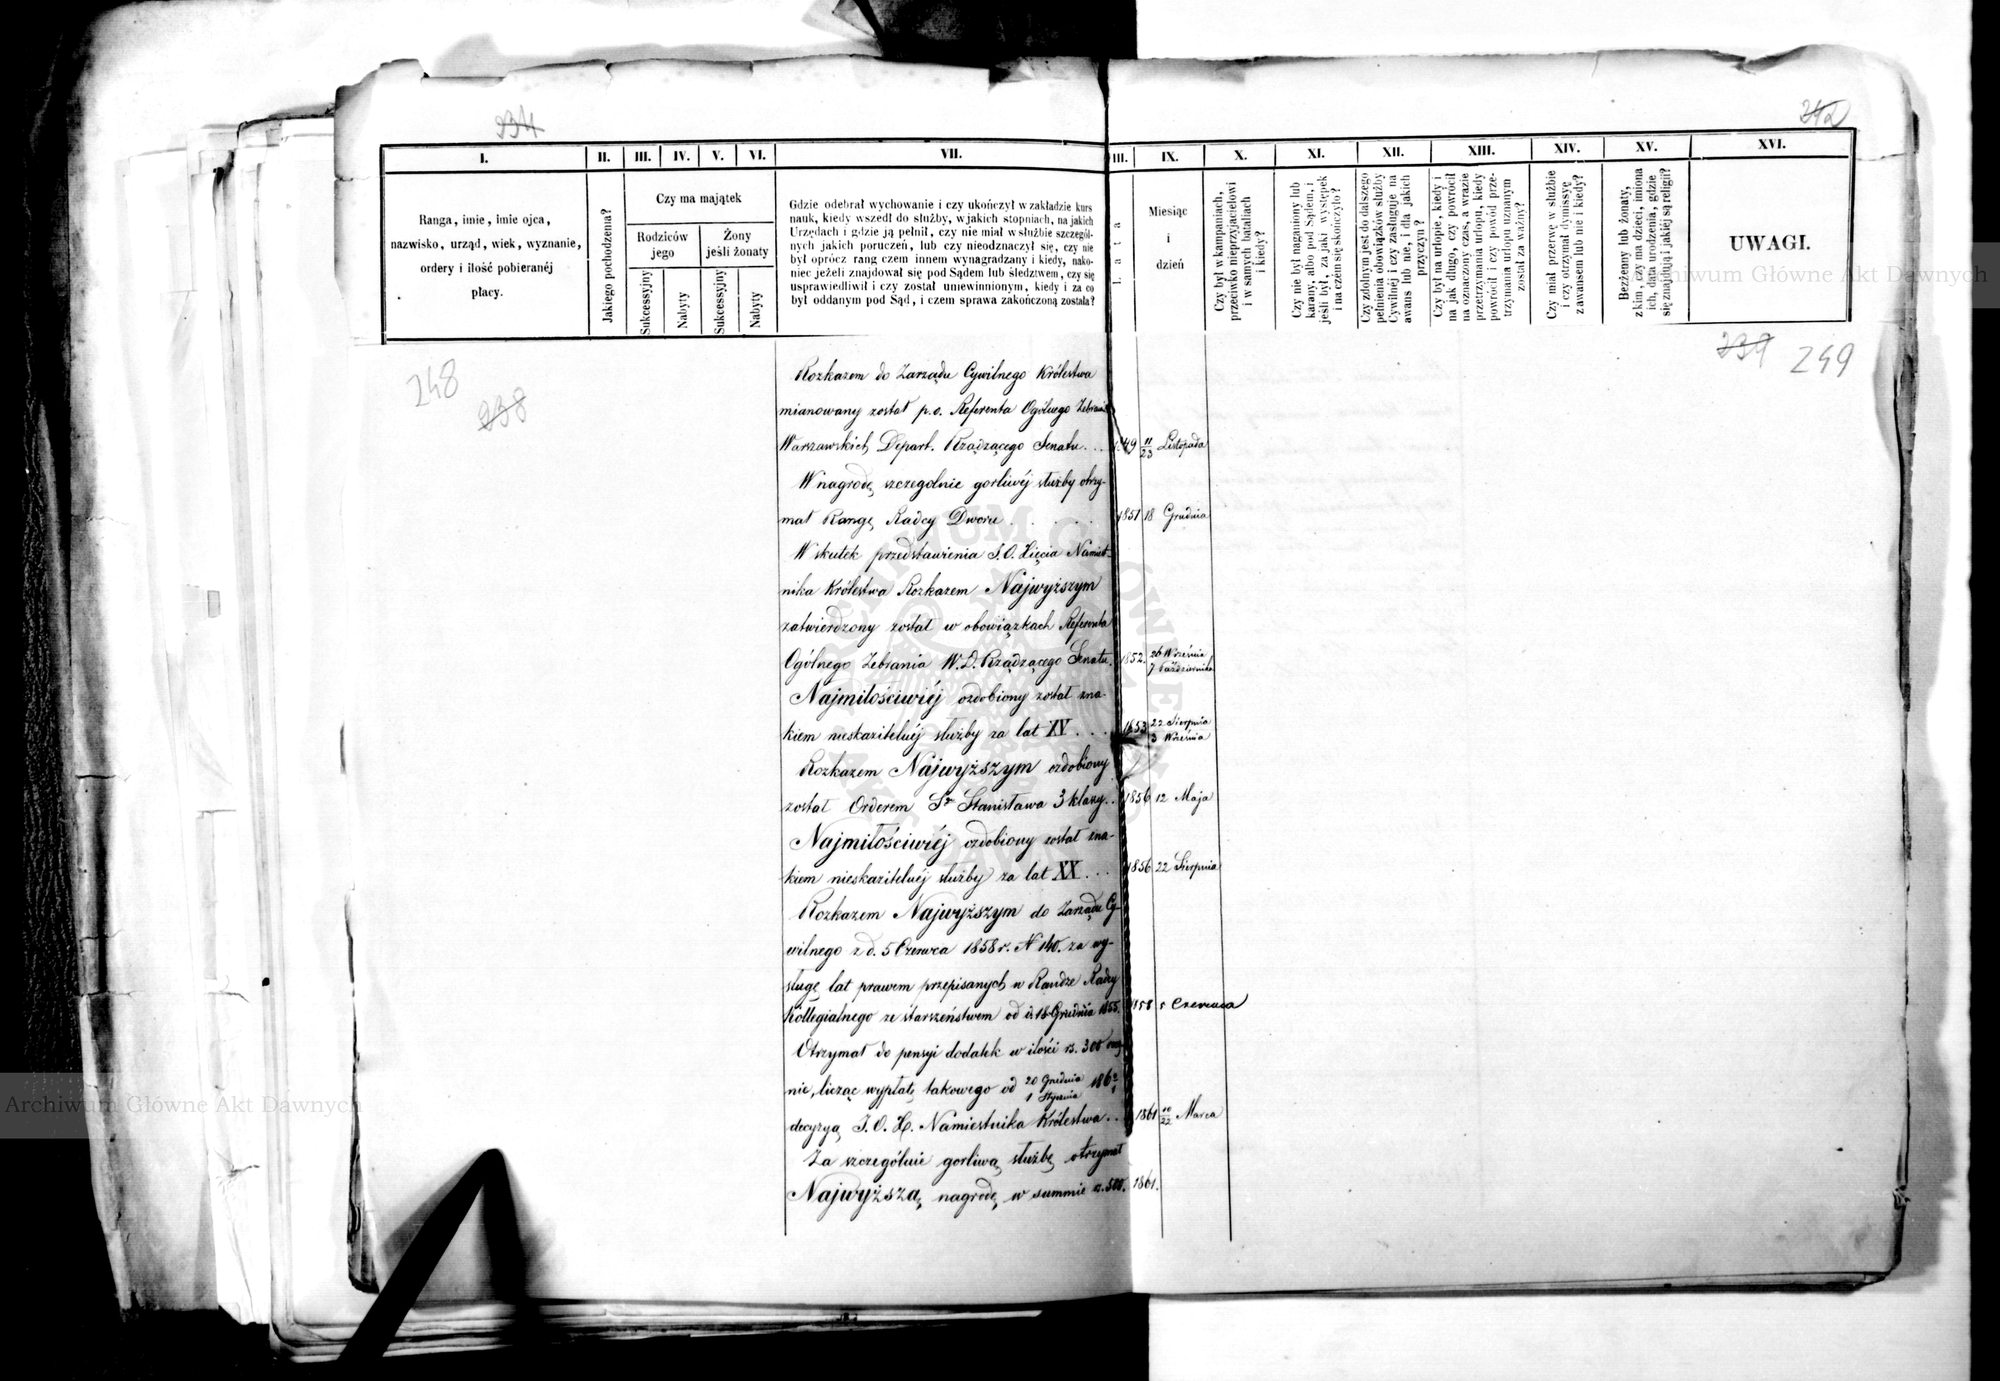 234
242
I.
II.
III.
IV.
V.
VI.
VII.
III.
IX.
X.
XI.
XII.
XIII.
XIV.
XV.
XVI.
Ranga, imie, imie ojca,
nazwisko, urząd, wiek, wyznanie,
ordery i ilość pobieranéj
płacy.
Jakiego pochodzenia?
Czy ma majątek
Rodziców
jego
Żony
jeśli żonaty
Sukcessyjny
Nabyty
Sukcessyjny
Nabyty
Gdzie odebrał wychowanie i czy ukończył w zakładzie kurs
nauk, kiedy wszedł do służby, w jakich stopniach, na jakich
Urzędach i gdzie ją pełnił, czy nie miał w służbie szczegól-
nych jakich poruczeń, lub czy nieodznaczył się, czy nie
był oprócz rang czem innem wynagradzany i kiedy, nako-
niec jeżeli znajdował się pod Sądem lub śledztwem, czy się
usprawiedliwił i czy został uniewinnionym, kiedy i za co
był oddanym pod Sąd, i czem sprawa zakończoną została?
Lata
Miesiąc
i
dzień
Czy był w kampaniach,
przeciwko nieprzyjacielowi
i w samych bataliach
i kiedy?
Czy nie był naganiony lub
karany, albo pod Sądem, i
jeśli był, za jaki występek
i na czém się skończyło?
Czy zdolnym jest do dalszego
pełnienia obowiązków służby
Cywilnéj i czy zasługuje na
awans lub nie, i dla jakich
przyczyn?
Czy był na urlopie, kiedy i
na jak długo, czy powrócił
na oznaczony czas, a w razie
przetrzymania urlopu, kiedy
powrócił i czy powód prze-
trzymania urlopu uznanym
został za ważny?
Czy miał przerwę w służbie
i czy otrzymał dymissyę
z awansem lub nie i kiedy?
Bezżenny lub żonaty,
z kim, czy ma dzieci, imiona
ich, data urodzenia, gdzie
się znajdują i jakiéj są religii?
UWAGI.
248
238
239
249
Rozkazem do Zarządu Cywilnego Królestwa
mianowany został p.o. Referenta Ogólnego Zebrania
Warszawskich Depart. Rządzącego Senatu... 1849 11/23 Listopada
W nagrodę szczególnie gorliwéj służby otrzy-
mał Rangę Radcy Dworu . . . . . 1851 18 Grudnia
W skutek przedstawienia J.O. Xięcia Namiest-
nika Królestwa Rozkazem Najwyższym
zatwierdzony został w obowiązkach Referenta
Ogólnego Zebrania W.D. Rządzącego Senatu. 1852. 26 Września
7 Października
Najmiłościwiéj ozdobiony został zna-
kiem nieskazitelnéj służby za lat XV . . . 1853 22 Sierpnia
3 Września
Rozkazem Najwyższym ozdobiony
został Orderem Sgo Stanisława 3 klassy.. 1856 12 Maja
Najmiłościwiéj ozdobiony został zna-
kiem nieskazitelnéj służby za lat XX ... 1856 22 Sierpnia
Rozkazem Najwyższym do Zarządu Cy-
wilnego z d. 5 Czerwca 1858 r. N 140. za wy-
sługę lat prawem przepisanych w Randze Radcy
Kollegialnego ze starszeństwem od d. 18 Grudnia 1855. 1858 5 Czerwca
Otrzymał do pensyi dodatek w ilości rs. 300
nie, licząc wypłatę takowego od 20 Grudnia
1 Stycznia 1860/1
decyzyą J.O.X. Namiestnika Królestwa .. 1861 10/22 Marca
Za szczególnie gorliwą służbę otrzymał
Najwyższą nagrodę w summie rs. 500. 1861.
Archiwum Główne Akt Dawnych
Archiwum Główne Akt Dawnych